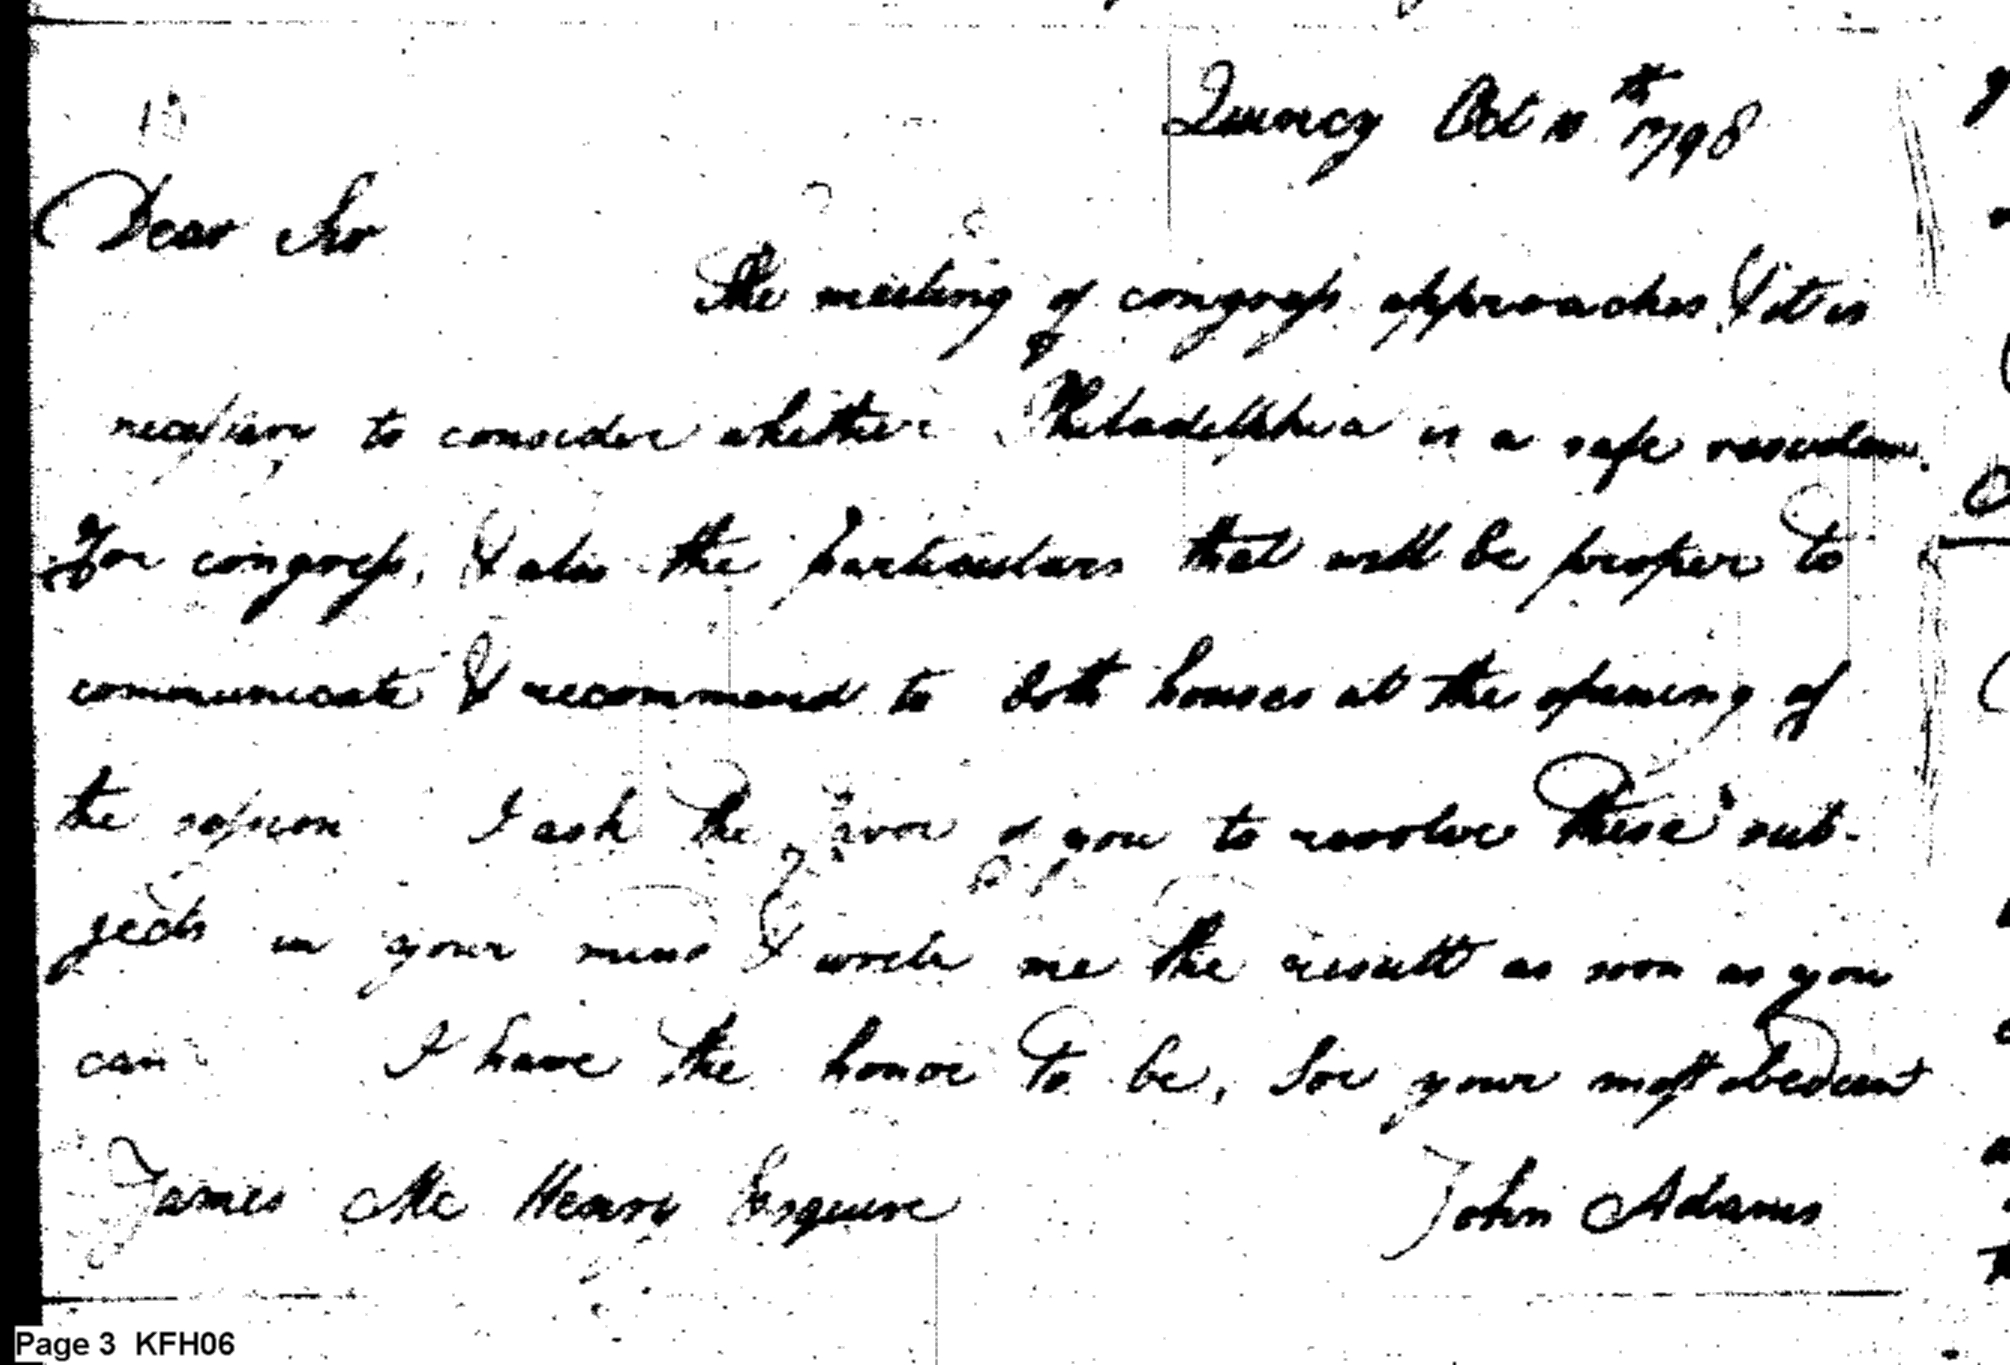 Quincy Oct 10th 1798
Dear Sir
The meeting of congress approaches & it is
necessary to consider whether Philadelphia is a safe residence
For congress, & also the particulars that will be proper to
communicate & recommend to both houses at the opening of
the session I ask the favor of you to revolve these sub-
jects in your mind & write me the result as soon as you
can I have the honor to be, Sir your most obedient
James Mc Henry Esquire John Adams
Page 3 KFH06